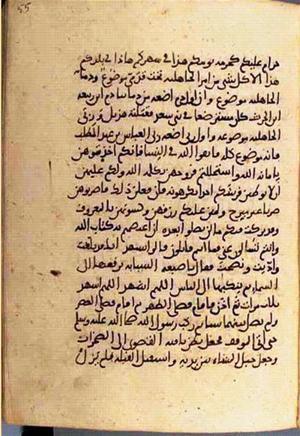 حرام عليكم كحرمة يومكم هذا في شهركم هذا في بلدكم
هذا الا كل شي من امر الجاهلية تحت قدمي موضوع ودما
الجاهلية موضوعة وان اول دم اضعه من دمائنا دم ابن ربيعة
ابن الحرث كان مسترضعا في بني سعد فقتلته هذيل وربا
الجاهلية موضوع واول ربا اضعه ربا العباس بن عبد المطلب
فانه موضوع كله فاتقوا الله في النسا فانكم اخذتموهن
بامانة الله واستحللتم فروجهن بكلمة الله ولكم عليهن
الا يوطئن فرشكم احدا تكرهونه فان فعلن ذلك فاضربوهن
ضربا غير مبرح ولهن عليكم رزقهن وكسوتهن بالمعروف
وقد تركت فيكم ما لن تضلوا بعده ان اعتصمتم به كتاب الله
وانتم تسألون عني فما انتم قائلون قالوا نشهد انك قد بلغت
واديت ونصحت فقال باصبعه السبابة يرفعها الى
السماء وينكتها الى الناس اللهم اشهد اللهم اشهد
ثلث مرات ثم اذن ثم اقام فصلى الظهر ثم اقام فصلى العصر
ولم يصل بينهما شيا ثم ركب رسول الله صلى الله عليه وسلم
حتى اتى الموقف فجعل بطن ناقته القصوى الى الصخرات
وجعل حبل المشاة بين يديه واستقبل القبلة فلم يزل